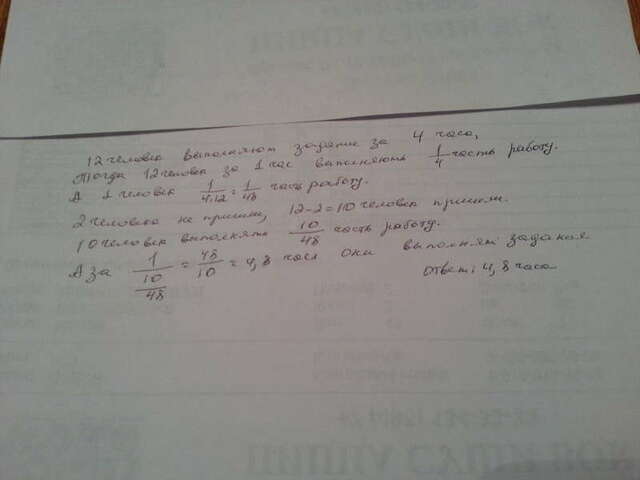 12 человек выполняют задание за 4 часа,
тогда 12 человек за 1 час выполняють 1/4 часть работу.
А 1 человек 1/4·12 = 1/48 часть работу.
2 человека не пришли, 12-2=10 человек пришли.
10 человек выполнять 10/48 часть работу.
А за 1/(10/48) = 48/10 = 4,8 часа они выполнят задания
ответ: 4,8 часа